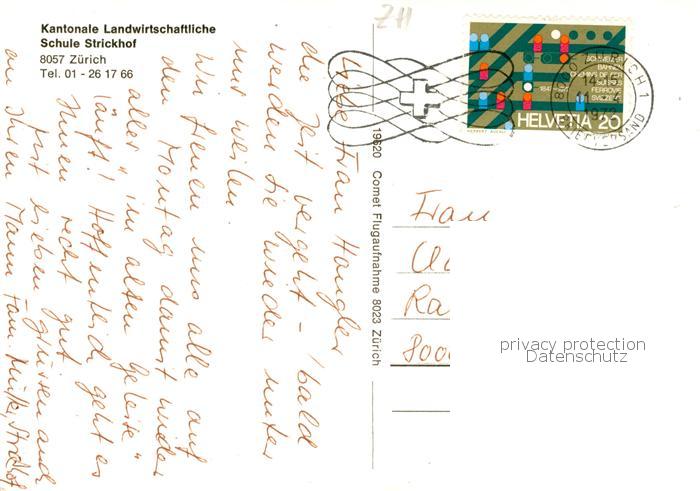 Kantonale Landwirtschaftliche
Schule Strickhof
8057 Zürich
Tel. 01 - 26 17 66
Liebe Frau Hangler
die Zeit vergeht - bald
werden Sie wieder unter
uns weilen
Wir freuen uns alle auf
den Montag damit wieder
alles "im alten Geleise"
läuft! Hoffentlich geht es
Ihnen recht gut
Mit lieben Grüssen auch
an Ihren Mann Fam.
19620 Comet Flugaufnahme 8023 Zürich
ZH
HELVETIA 20
SCHWEIZER
BAHNEN
CHEMINS DE FER
SUISSES
FERROVIE
SVIZZERE
1847-1972
Frau
Ra
8000
privacy protection
Datenschutz